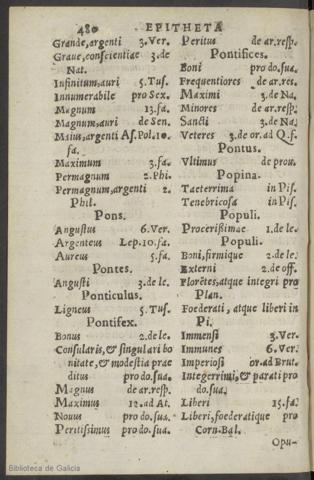 480 EPITHETA
Grande, argenti 3. Ver.
Graue, conscientiae 3. de
Nat.
Infinitum, auri 5. Tus.
Innumerabile pro Sex.
Magnum 13. fa.
Magnum, auri de Sen.
Maius, argenti As. Pol. 10.
fa.
Maximum 3. fa.
Permagnum 2. Phi.
Permagnum, argenti 2.
Phil.
Pons.
Angustus 6. Ver.
Argenteus Lep. 10. fa.
Aureus 5. fa.
Pontes.
Angusti 3. de le.
Ponticulus.
Ligneus 5. Tus.
Pontifex.
Bonus 2. de le.
Consularis, & singulari bo
nitate, & modestia prae
ditus pro do. sua.
Magnus de ar. resp.
Maximus 12. ad At.
Nouus pro do. sua.
Peritissimus pro do. sua.
Peritus de ar. resp.
Pontifices.
Boni pro do. sua.
Frequentiores de ar. res.
Maximi 3. de Na.
Minores de ar. resp.
Sancti 3. de Na.
Veteres 3. de or. ad Q. f.
Pontus.
Vltimus de prou.
Popina.
Taeterrima in Pis.
Tenebricosa in Pis.
Populi.
Procerissimae 1. de le.
Populi.
Boni, firmique 2. de le.
Externi 2. de off.
Florētes, atque integri pro
Plan.
Foederati, atque liberi in
Pi.
Immensi 3. Ver.
Immunes 6. Ver.
Imperiosi or. ad Brut.
Integerrimi, & parati pro
do. sua.
Liberi 15. fa.
Liberi, foederatique pro
Corn. Bal.
Opu-
Biblioteca de Galicia